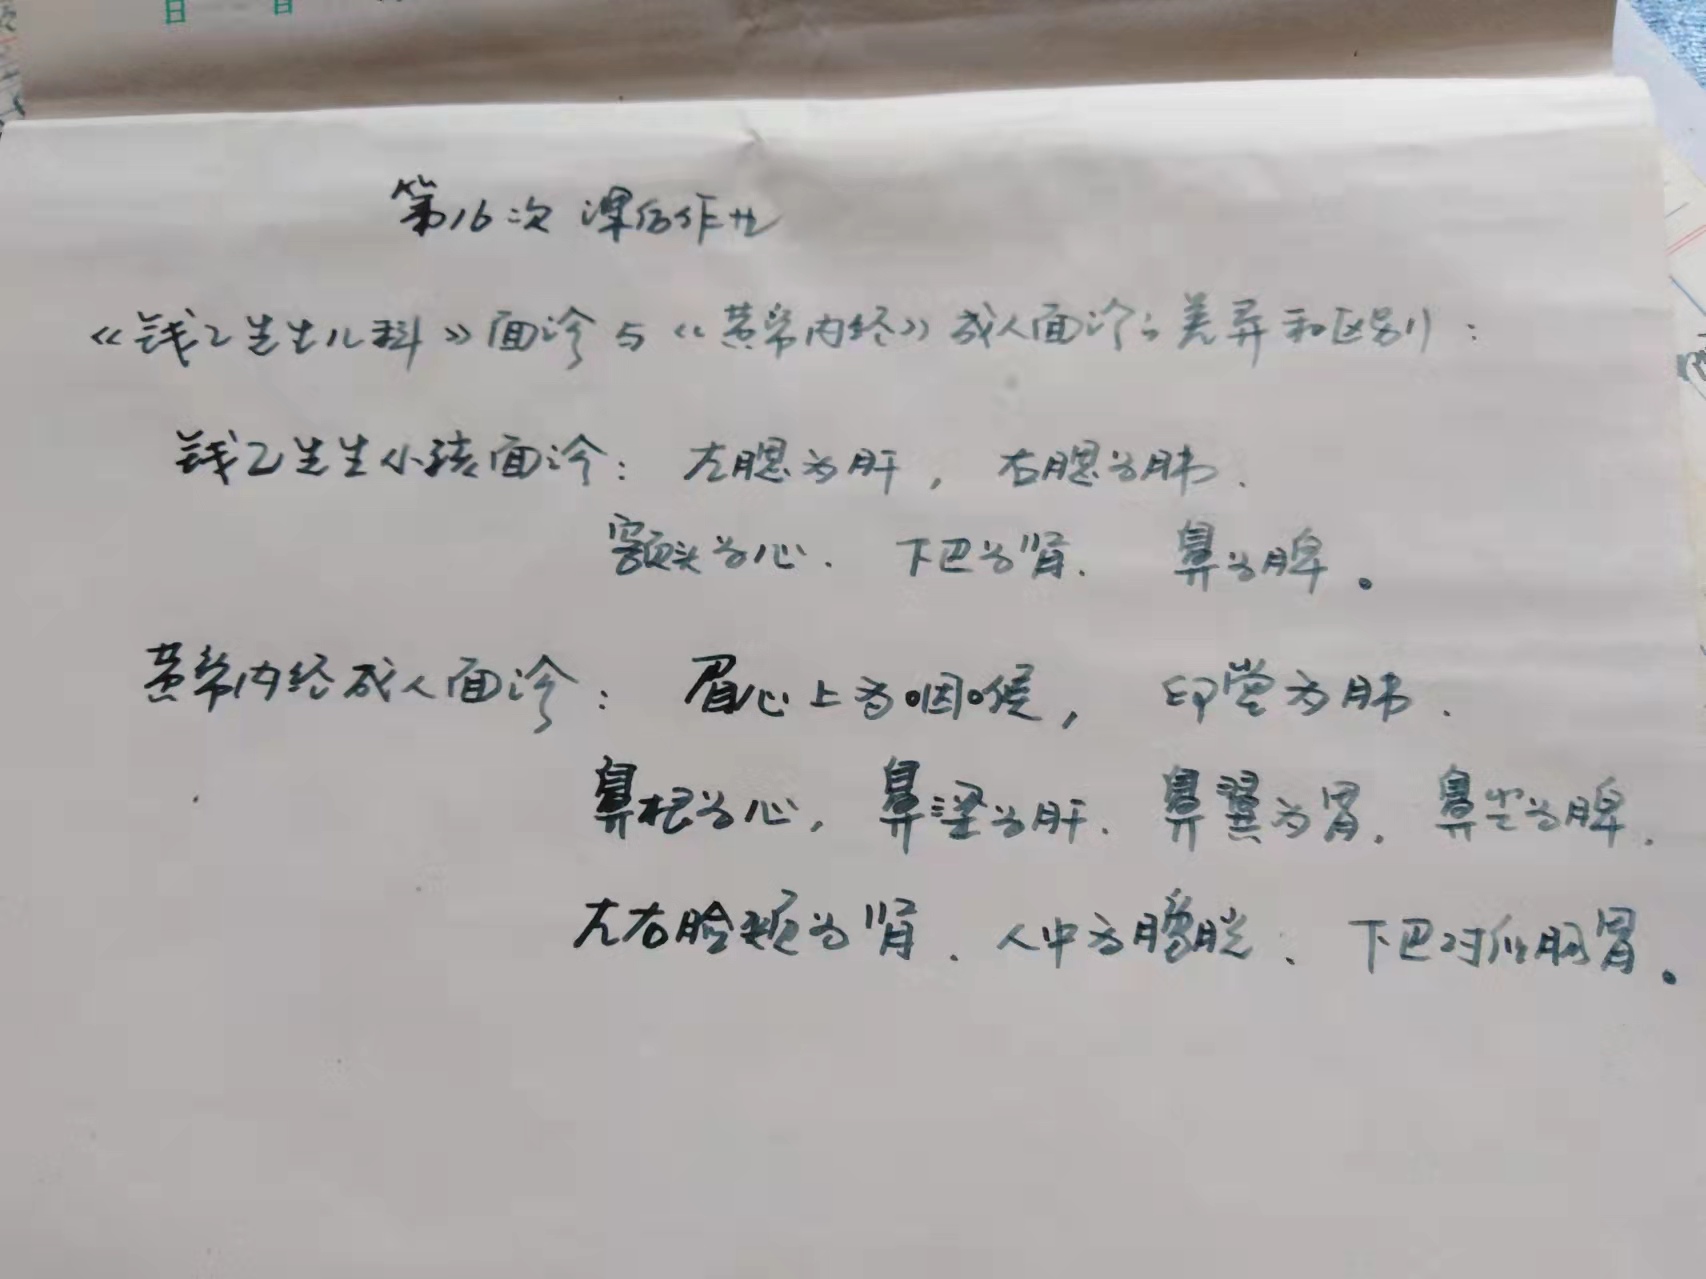 日 日
第16次 课后作业
《钱乙先生儿科》面诊与《黄帝内经》成人面诊之差异和区别:
钱乙先生小孩面诊: 左腮为肝, 右腮为肺.
额头为心. 下巴为肾. 鼻为脾。
黄帝内经成人面诊: 眉心上为咽喉, 印堂为肺.
鼻根为心, 鼻梁为肝. 鼻翼为胃. 鼻尖为脾.
左右脸颊为肾. 人中为膀胱: 下巴对应肠胃。